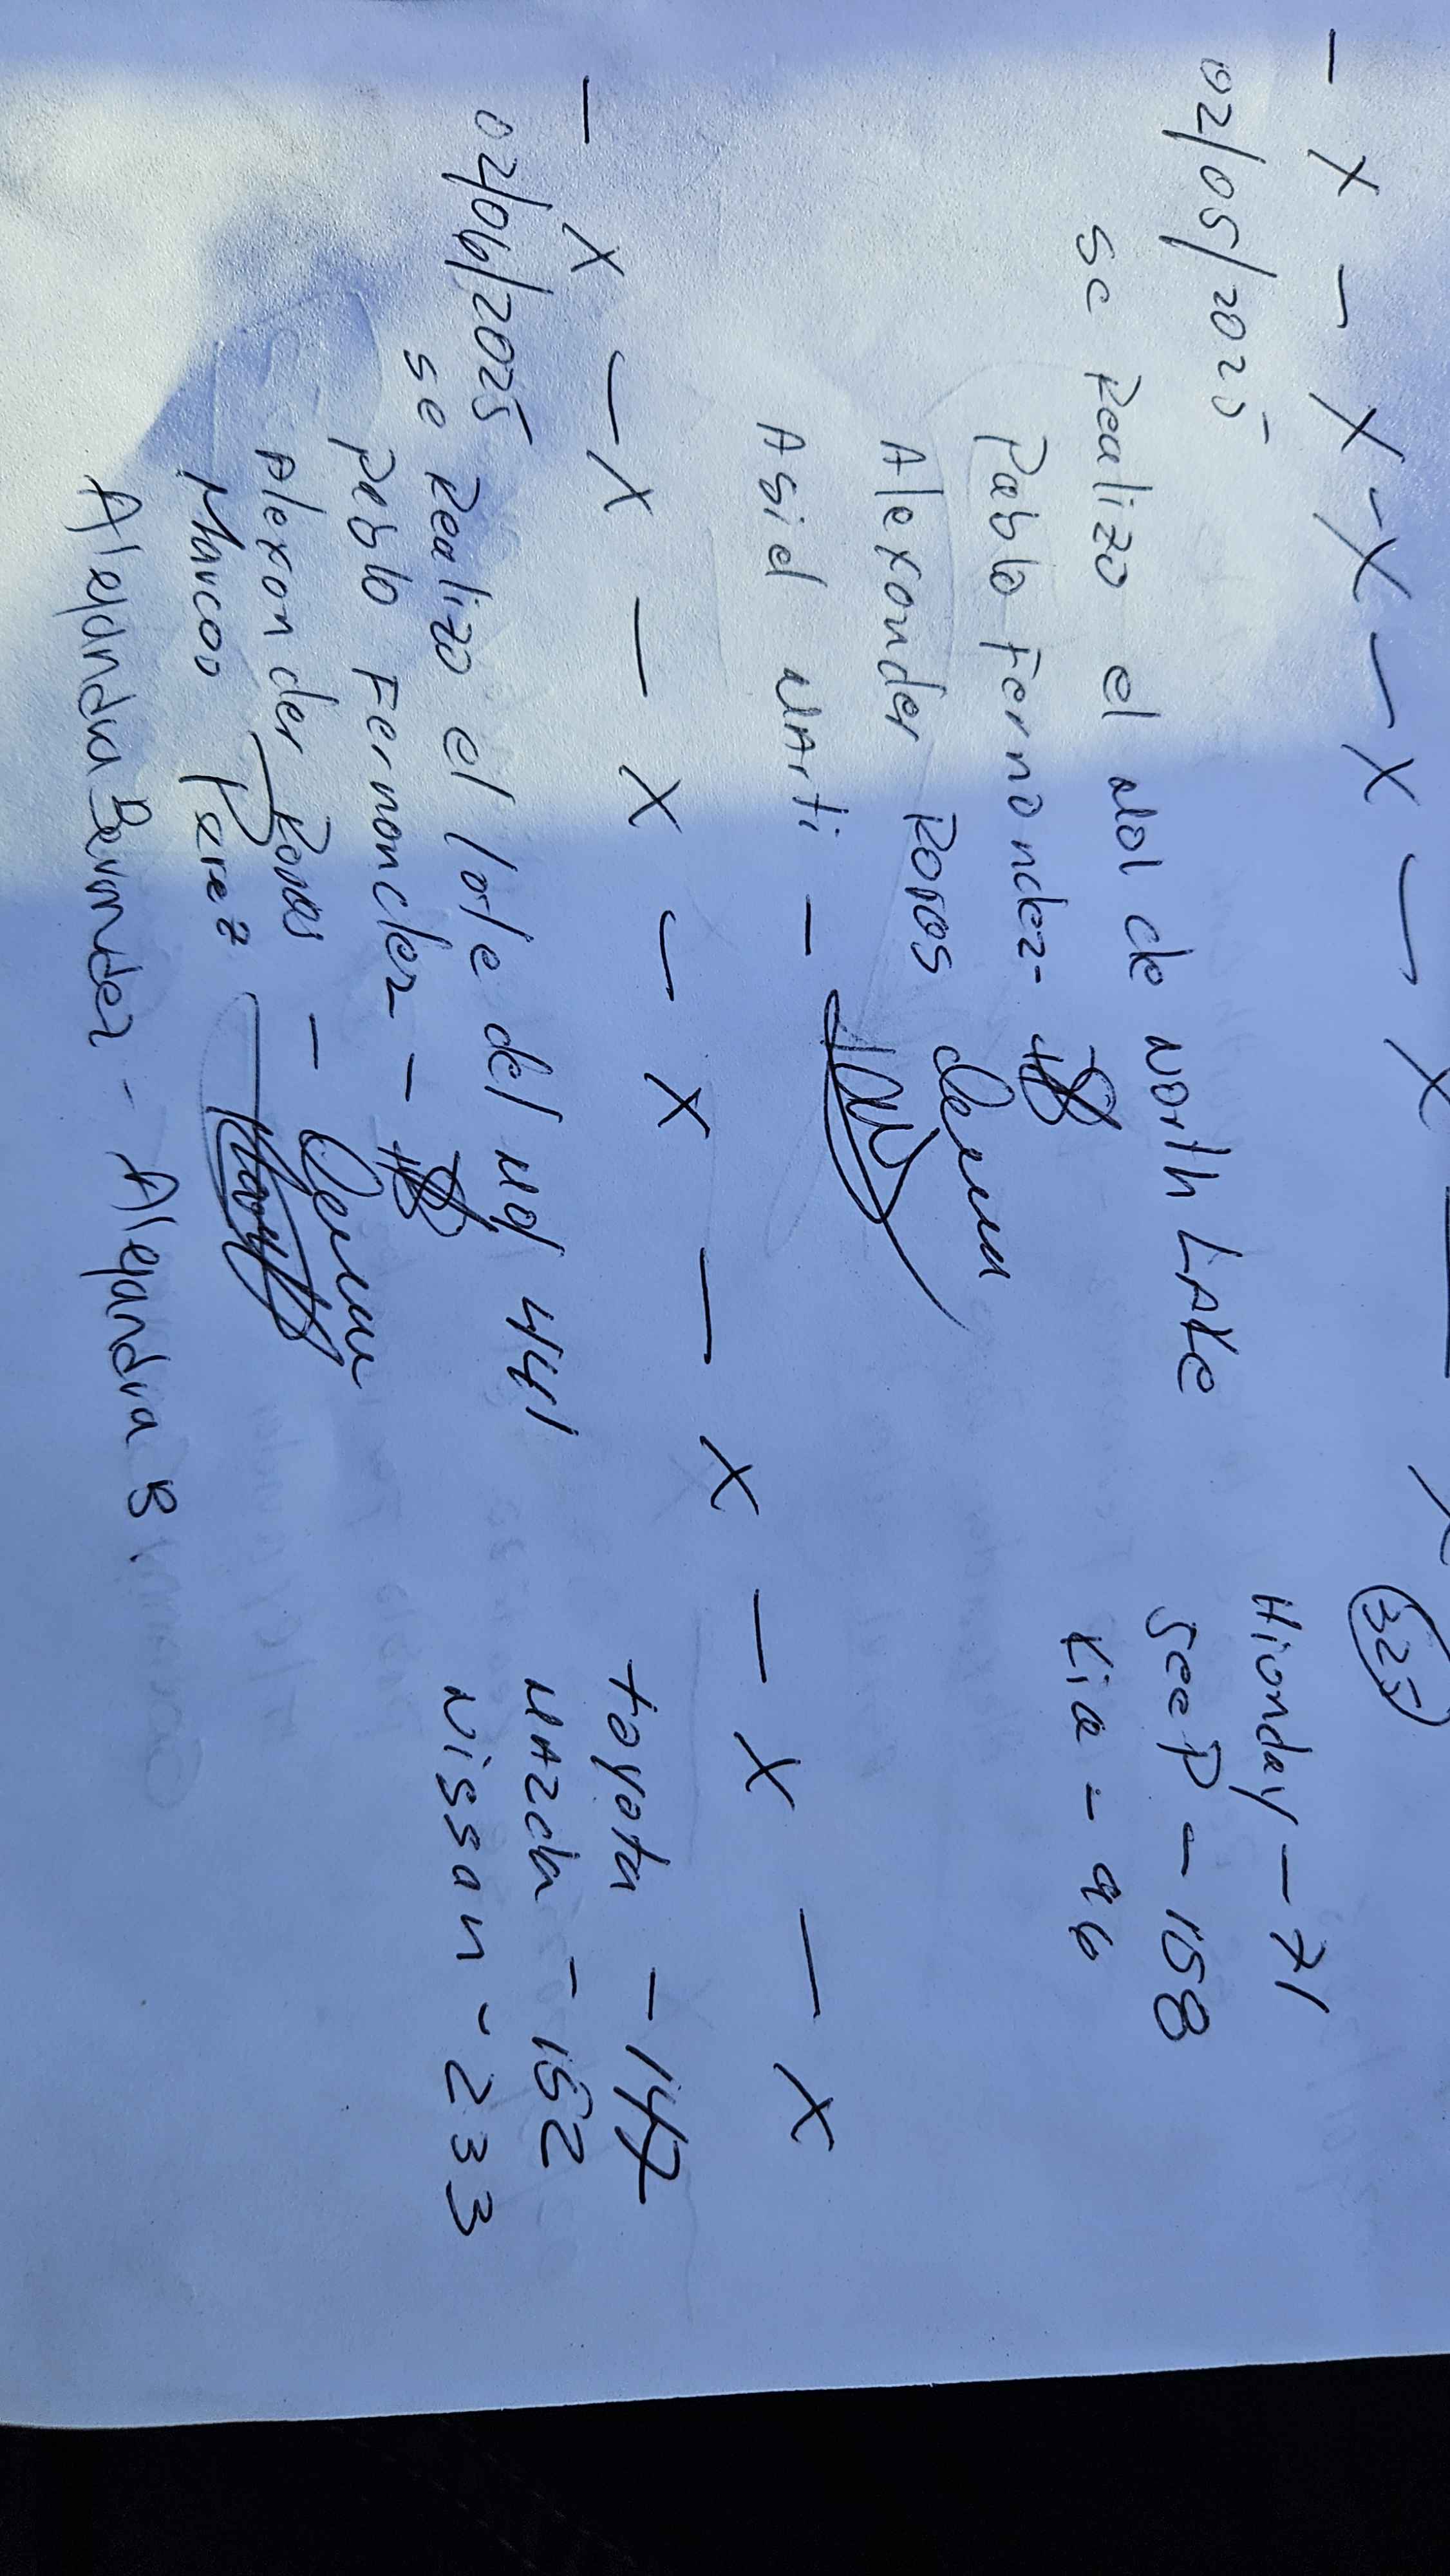 - X - X - X - X - X - X
325
02/05/2025
Hionday - 71
Se Realizo el Mol de North LAKE
JeeP - 158
Pablo Fernandez -
Kia - 96
Alexander Rosas
Asid MArti -
- X - X - X - X - X - X - X
02/06/2025
toyota - 147
Se Realizo el lote del Mol 441
MAzda - 152
Pablo Fernandez -
Nissan - 233
Alexander Rosas -
Marcos Perez
Alejandra Bermudez - Alejandra B